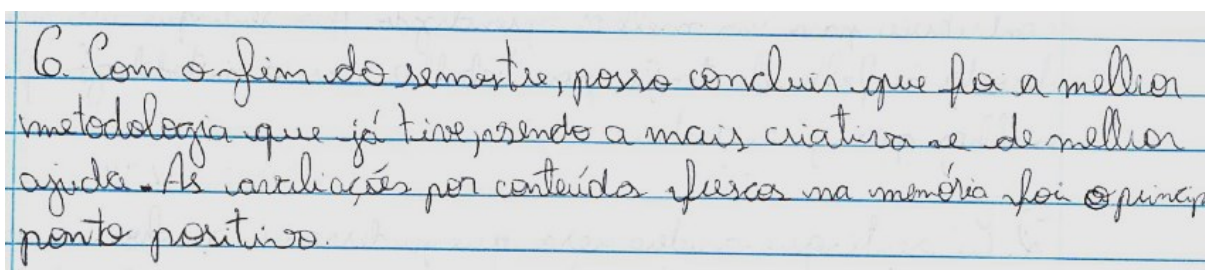 6. Com o fim do semestre, posso concluir que foi a melhor
metodologia que já tive, sendo a mais criativa e de melhor
ajuda. As avaliações por conteúdos frescos na memória foi o princip
ponto positivo.